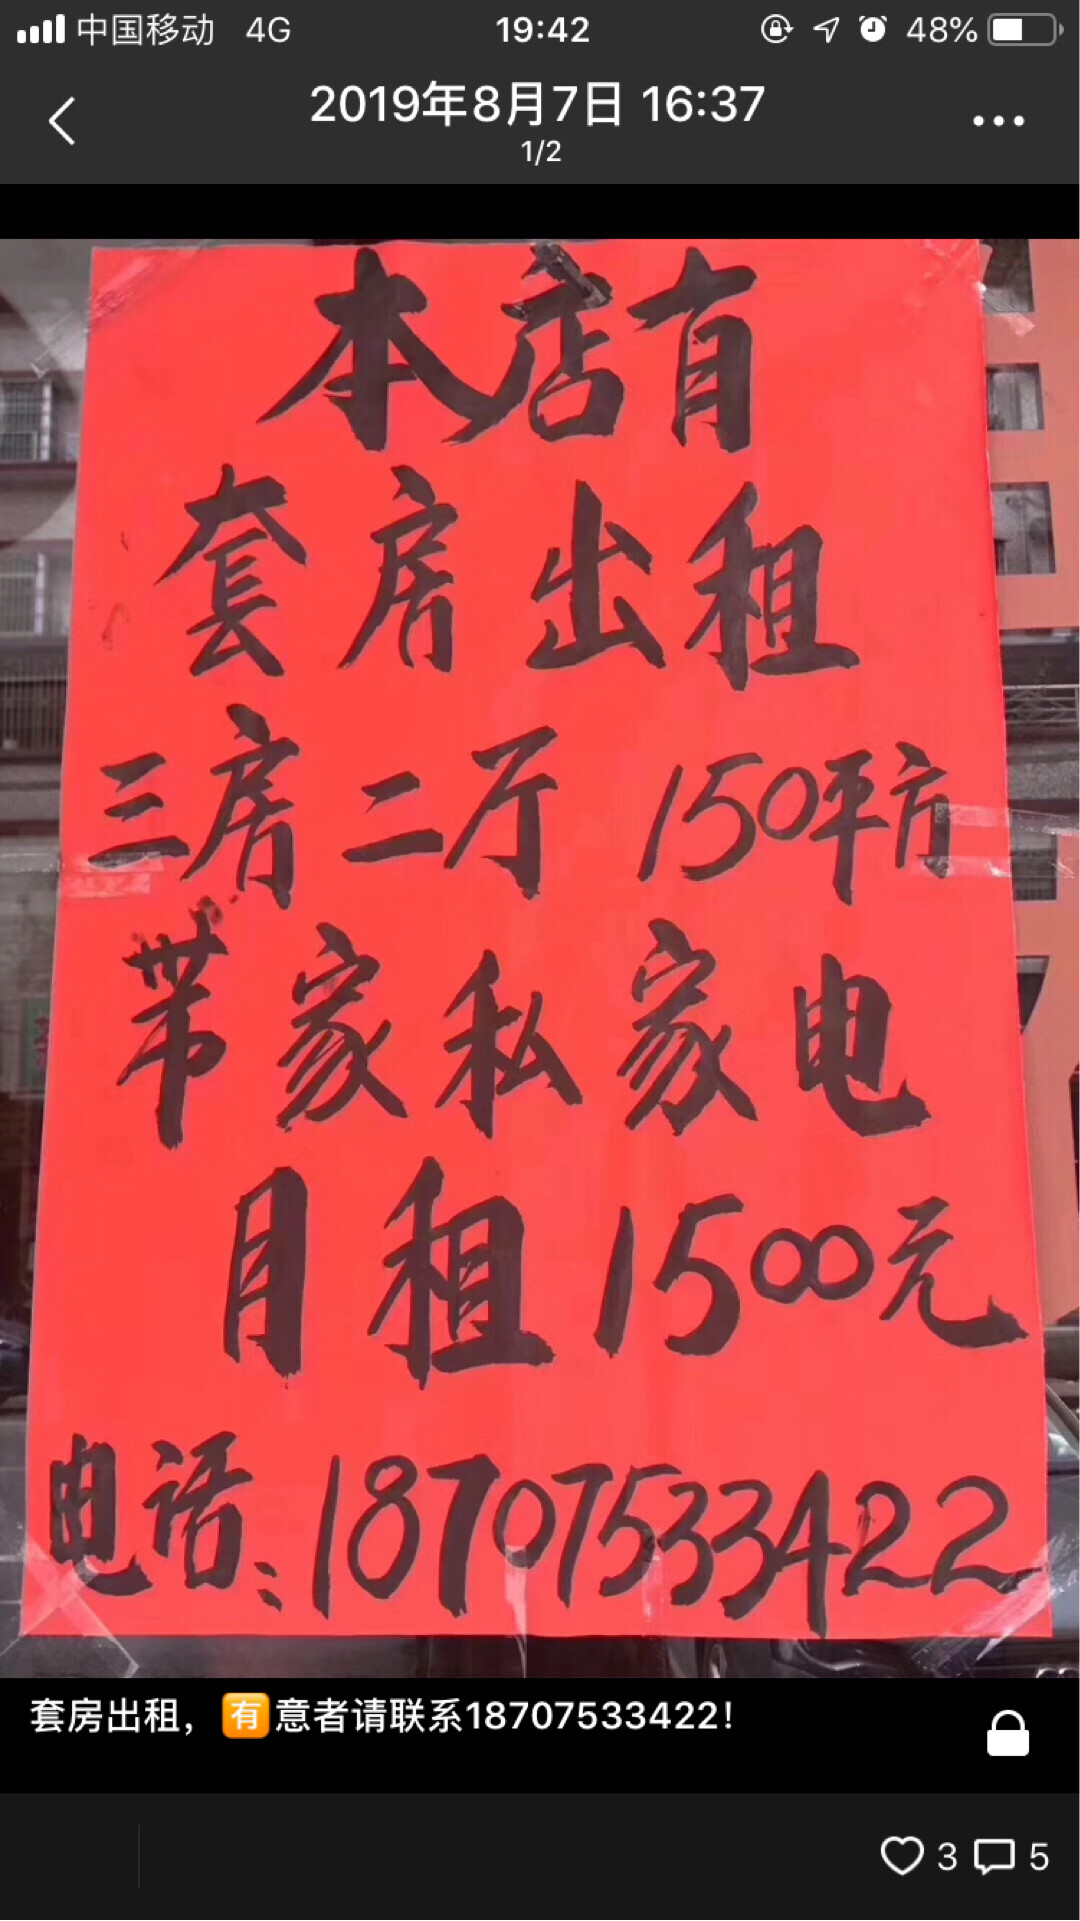 中国移动 4G 19:42 48%
2019年8月7日 16:37
1/2
本店有
套房出租
三房二厅 150平方
带家私家电
月租1500元
电话:18707533422
套房出租，🈶意者请联系18707533422！
3 5